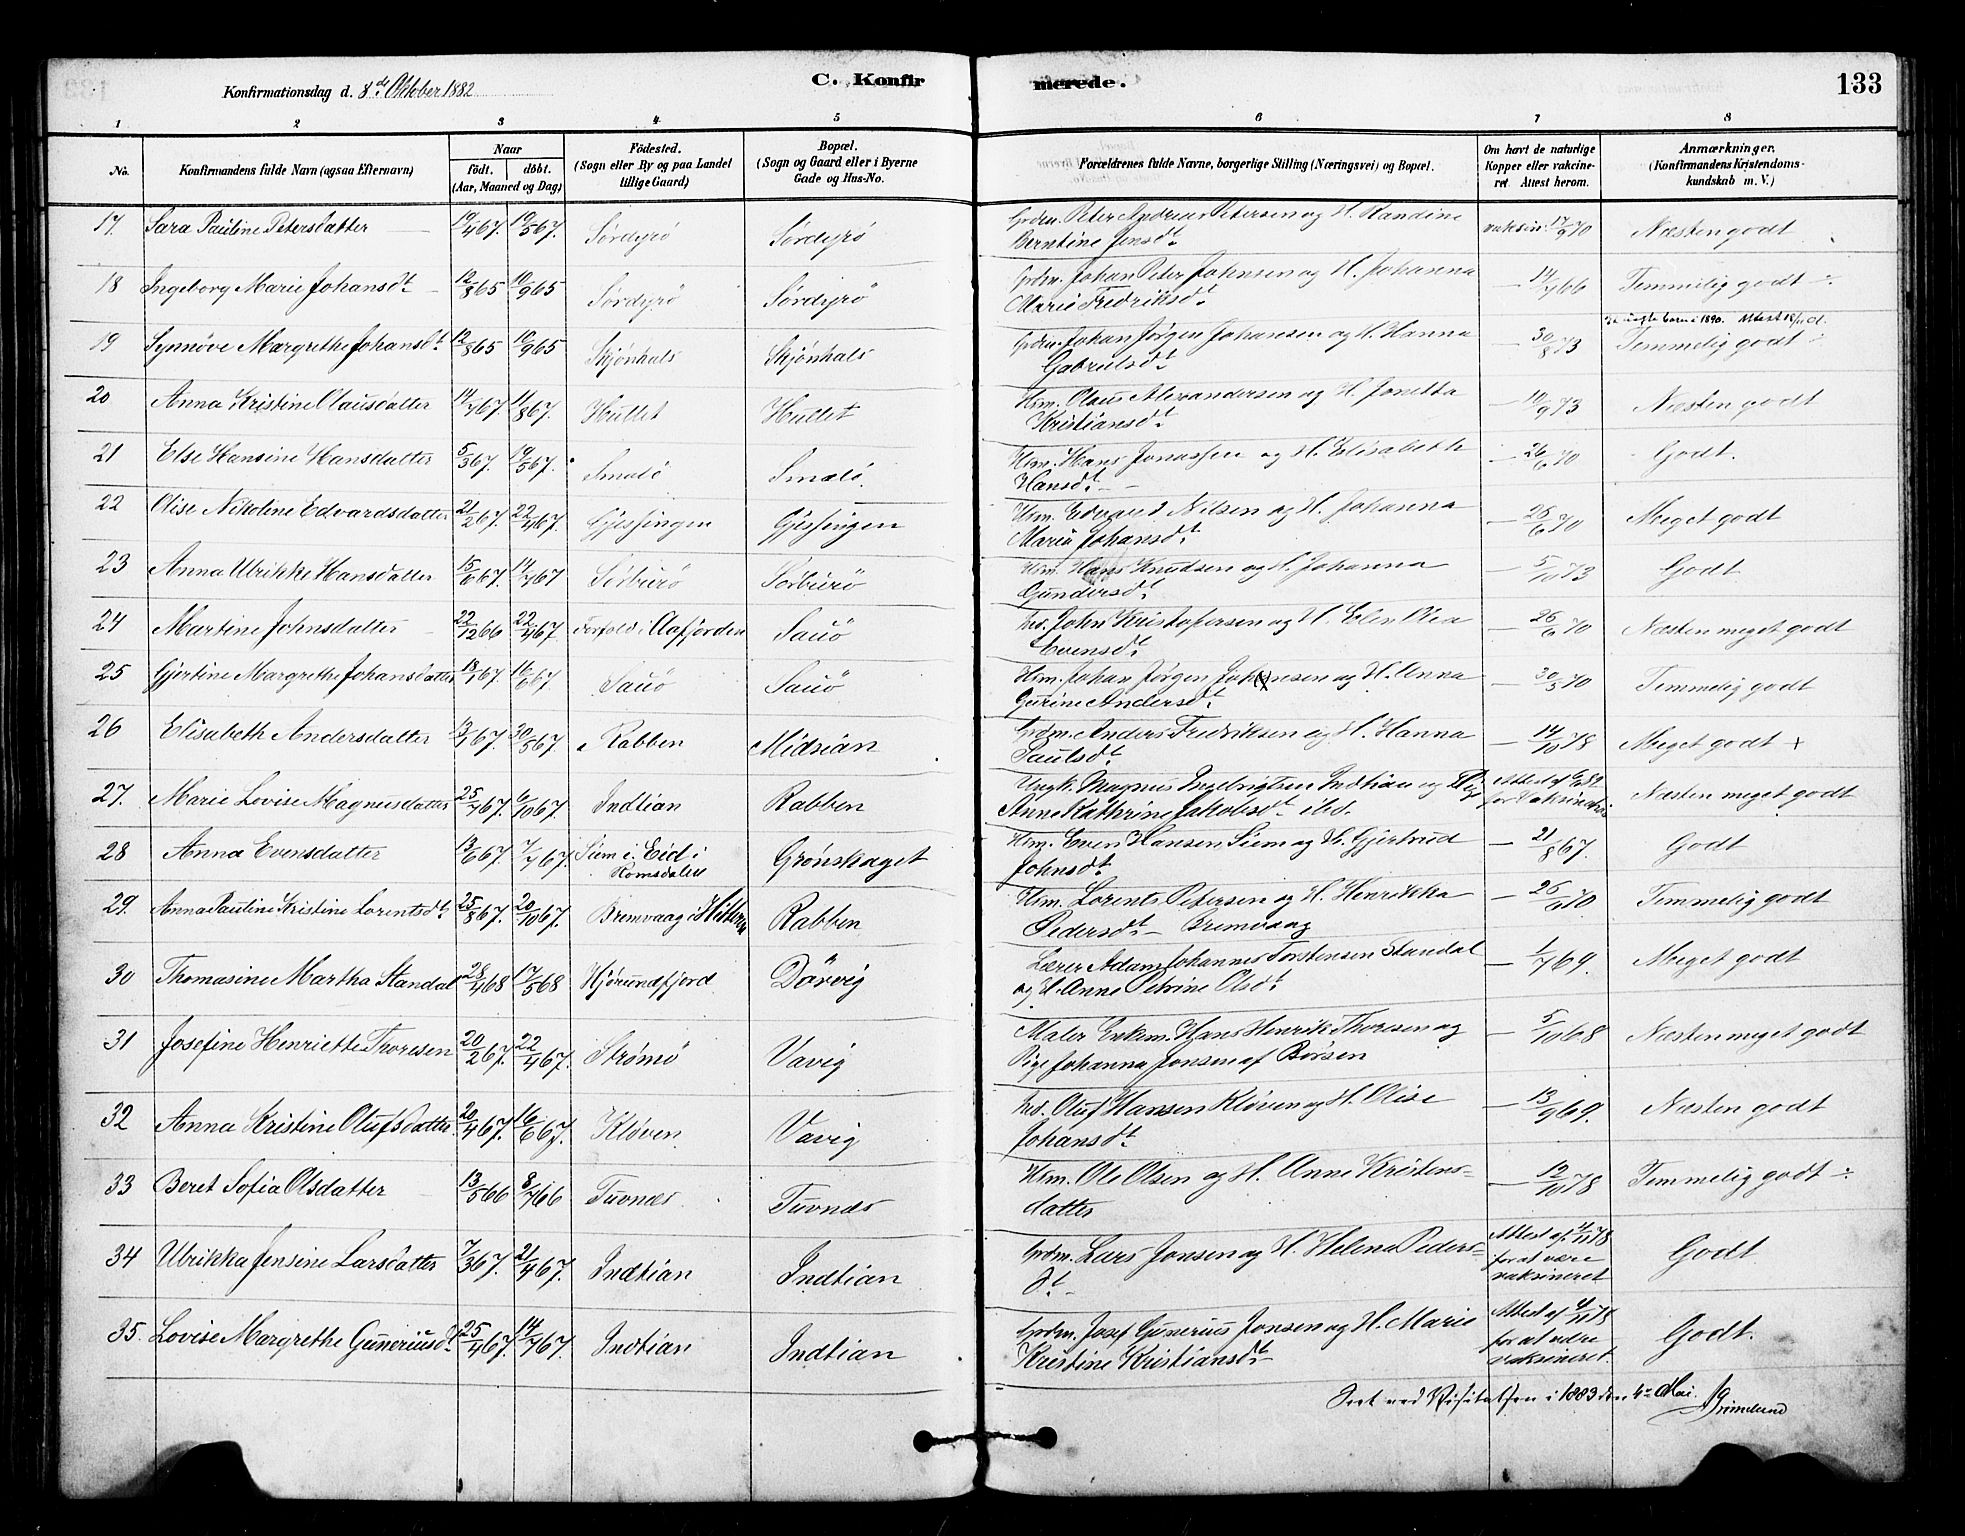 Konfirmationsdag d. 8de Oktober 1882
C. Konfirmerede.
133
1 2 3 4 5 6 7 8
No.
Konfirmandens fulde Navn (ogsaa Efternavn)
Naar
födt. döbt.
(Aar, Maaned og Dag)
Födested.
(Sogn eller By og paa Landet
tillige Gaard)
Bopæl.
(Sogn og Gaard eller i Byerne
Gade og Hus-No.
Forældrenes fulde Navne, borgerlige Stilling (Næringsvei) og Bopæl.
Om havt de naturlige
Kopper eller vakcine-
ret. Attest herom.
Anmærkninger.
(Konfirmandens Kristendoms-
kundskab m. V.)
17. Sara Pauline Petersdatter 19/4 67. 19/5 67. Sørdyrö Sørdyrö Grdm. Peter Andreas Petersen og H. Randine vaksin. 17/9 70 Næsten godt
Berntine Jensdt.
18 Ingeborg Marie Johansdt. 12/8 65 10/9 65 Sørdyrö Sørdyrö Grdm. Johan Peter Johnsen og H. Johanna — 14/7 66 Temmelig godt ÷
Marie Fredriksdt.
barn i 1890.
19 Synnöve Margrethe Johansdt. 12/8 65 10/9 65 Skjønhals Skjønhals Grdm. Johan Jørgen Johansen og H. Hanna — 30/8 73 Temmelig godt ÷
Gabrielsdt.
20 Anna Kristine Clausdatter 14/7 67. 11/8 67. Hullet Hullet Hsm. Claus Alexandersen og H. Jonetta — 10/9 73 Næsten godt
Kristiansdt.
21 Else Hansine Hansdatter 5/3 67. 19/5 67. Smalö Smalö Hsm. Hans Jonassen og H. Elisabeth — 26/6 70 Godt.
Hansdt.
22 Olise Nikoline Edvardsdatter 21/2 67. 22/4 67. Gjessingen Gjessingen Hsm. Edvard Nilsen og H. Johanna — 28/6 70 Meget godt
Maria Johansdt.
23 Anna Ulrikke Hansdatter 15/6 67. 14/7 67 Sørburö Sørburö Hsm. Hans Knudsen og H. Johanna — 5/10 73 Godt
Gundersdt.
24 Martine Johnsdatter 22/12 66 22/4 67. i Aafjorden Sauö Ind. John Kristofersen og H. Elen Olea — 26/6 70 Næsten meget godt
Evensdt.
25 Gjertine Margrethe Johansdatter 18/1 67. 16/6 67. Sauö Sauö Hsm. Johan Jørgen Johansen og H. Anna — 30/5 70 Temmelig godt
Gurine Andersdt.
26 Elisabeth Andersdatter 13/1 67. 30/5 67. Rabben Midsian Grdm. Anders Fredriksen og H. Hanna — 14/10 78 Meget godt +
Paulsdt.
27. Marie Lovise Magnusdatter 25/7 67. 6/10 67. Indtian Rabben Ungk. Magnus Ingebrigtsen Indtian og Pige Attest af Næsten meget godt
Anne Kathrine Jakobsdt. ibd. for Vaksination
28 Anna Evensdatter 13/6 67. 7/7 67. Siem i Eid i Grönskaget Hsm. Even Hansen Siem og H. Gjertrud — 21/8 67. Godt
Romsdalen Johnsdt.
29. Anna Pauline Kristine Lorentsdt. 25/8 67. 20/10 67. Bremvaag i Hitteren Rabben Hsm. Lorents Petersen og H. Henrikka — 26/6 70 Temmelig godt
Pedersdt. Bremvaag
30 Thomasine Martha Standal 28/4 68 17/5 68 Hjörundfjord Dörvig Lærer Adam Johannes Torstensen Standal — 1/7 69. Meget godt
og H. Anne Petrine Olsdt.
31 Josefine Henriette Thoresen 20/2 67. 22/4 67. Strömö Vavig Maler Enkem. Hans Henrik Thoresen og — 5/10 68 Næsten meget godt
Pige Johanna Jonsen af Börsen
32 Anna Kristine Olufsdatter 20/4 67. 16/6 67. Kløven Vavig Ind. Oluf Hansen Kløven og H. Olise — 13/9 69. Næsten godt
Johansdt.
33 Beret Sofia Olsdatter 13/5 66 8/7 66 Tuvnes Tuvnes Hsm. Ole Olsen og H. Anne Kristens- — 12/10 78 Temmelig godt ÷
datter
34 Ulrikka Jensine Larsdatter 7/3 67. 21/4 67. Indtian Indtian Grdm. Lars Jonsen og H. Helena Peders- Attest af 4/11 78 Godt
dt. for at være
vaksineret
35. Lovise Margrethe Guneriusdt. 25/4 67. 14/7 67. Indtian Indtian Grdm. Josef Gunerius Jonsen og H. Marie Attest af 4/11 78 Godt.
Kristine Kristiansdt. for at være
vaksineret.
Seet ved Visitatsen i 1883 den 4de Mai. Grimelund